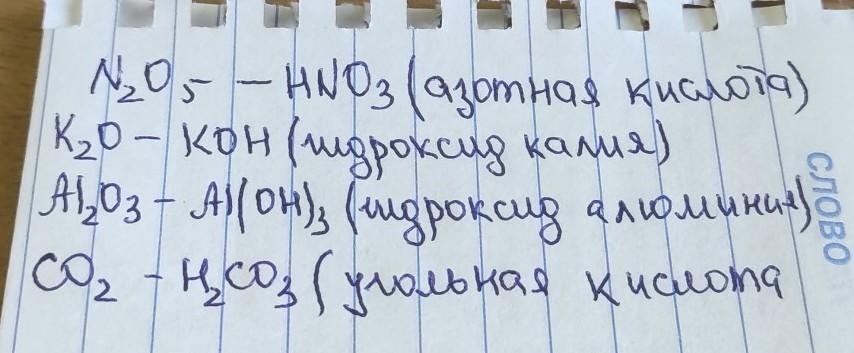 N₂O₅ – HNO₃ (азотная кислота)
K₂O – KOH (гидроксид калия)
Al₂O₃ – Al(OH)₃ (гидроксид алюминия)
CO₂ – H₂CO₃ (угольная кислота
СЛОВО